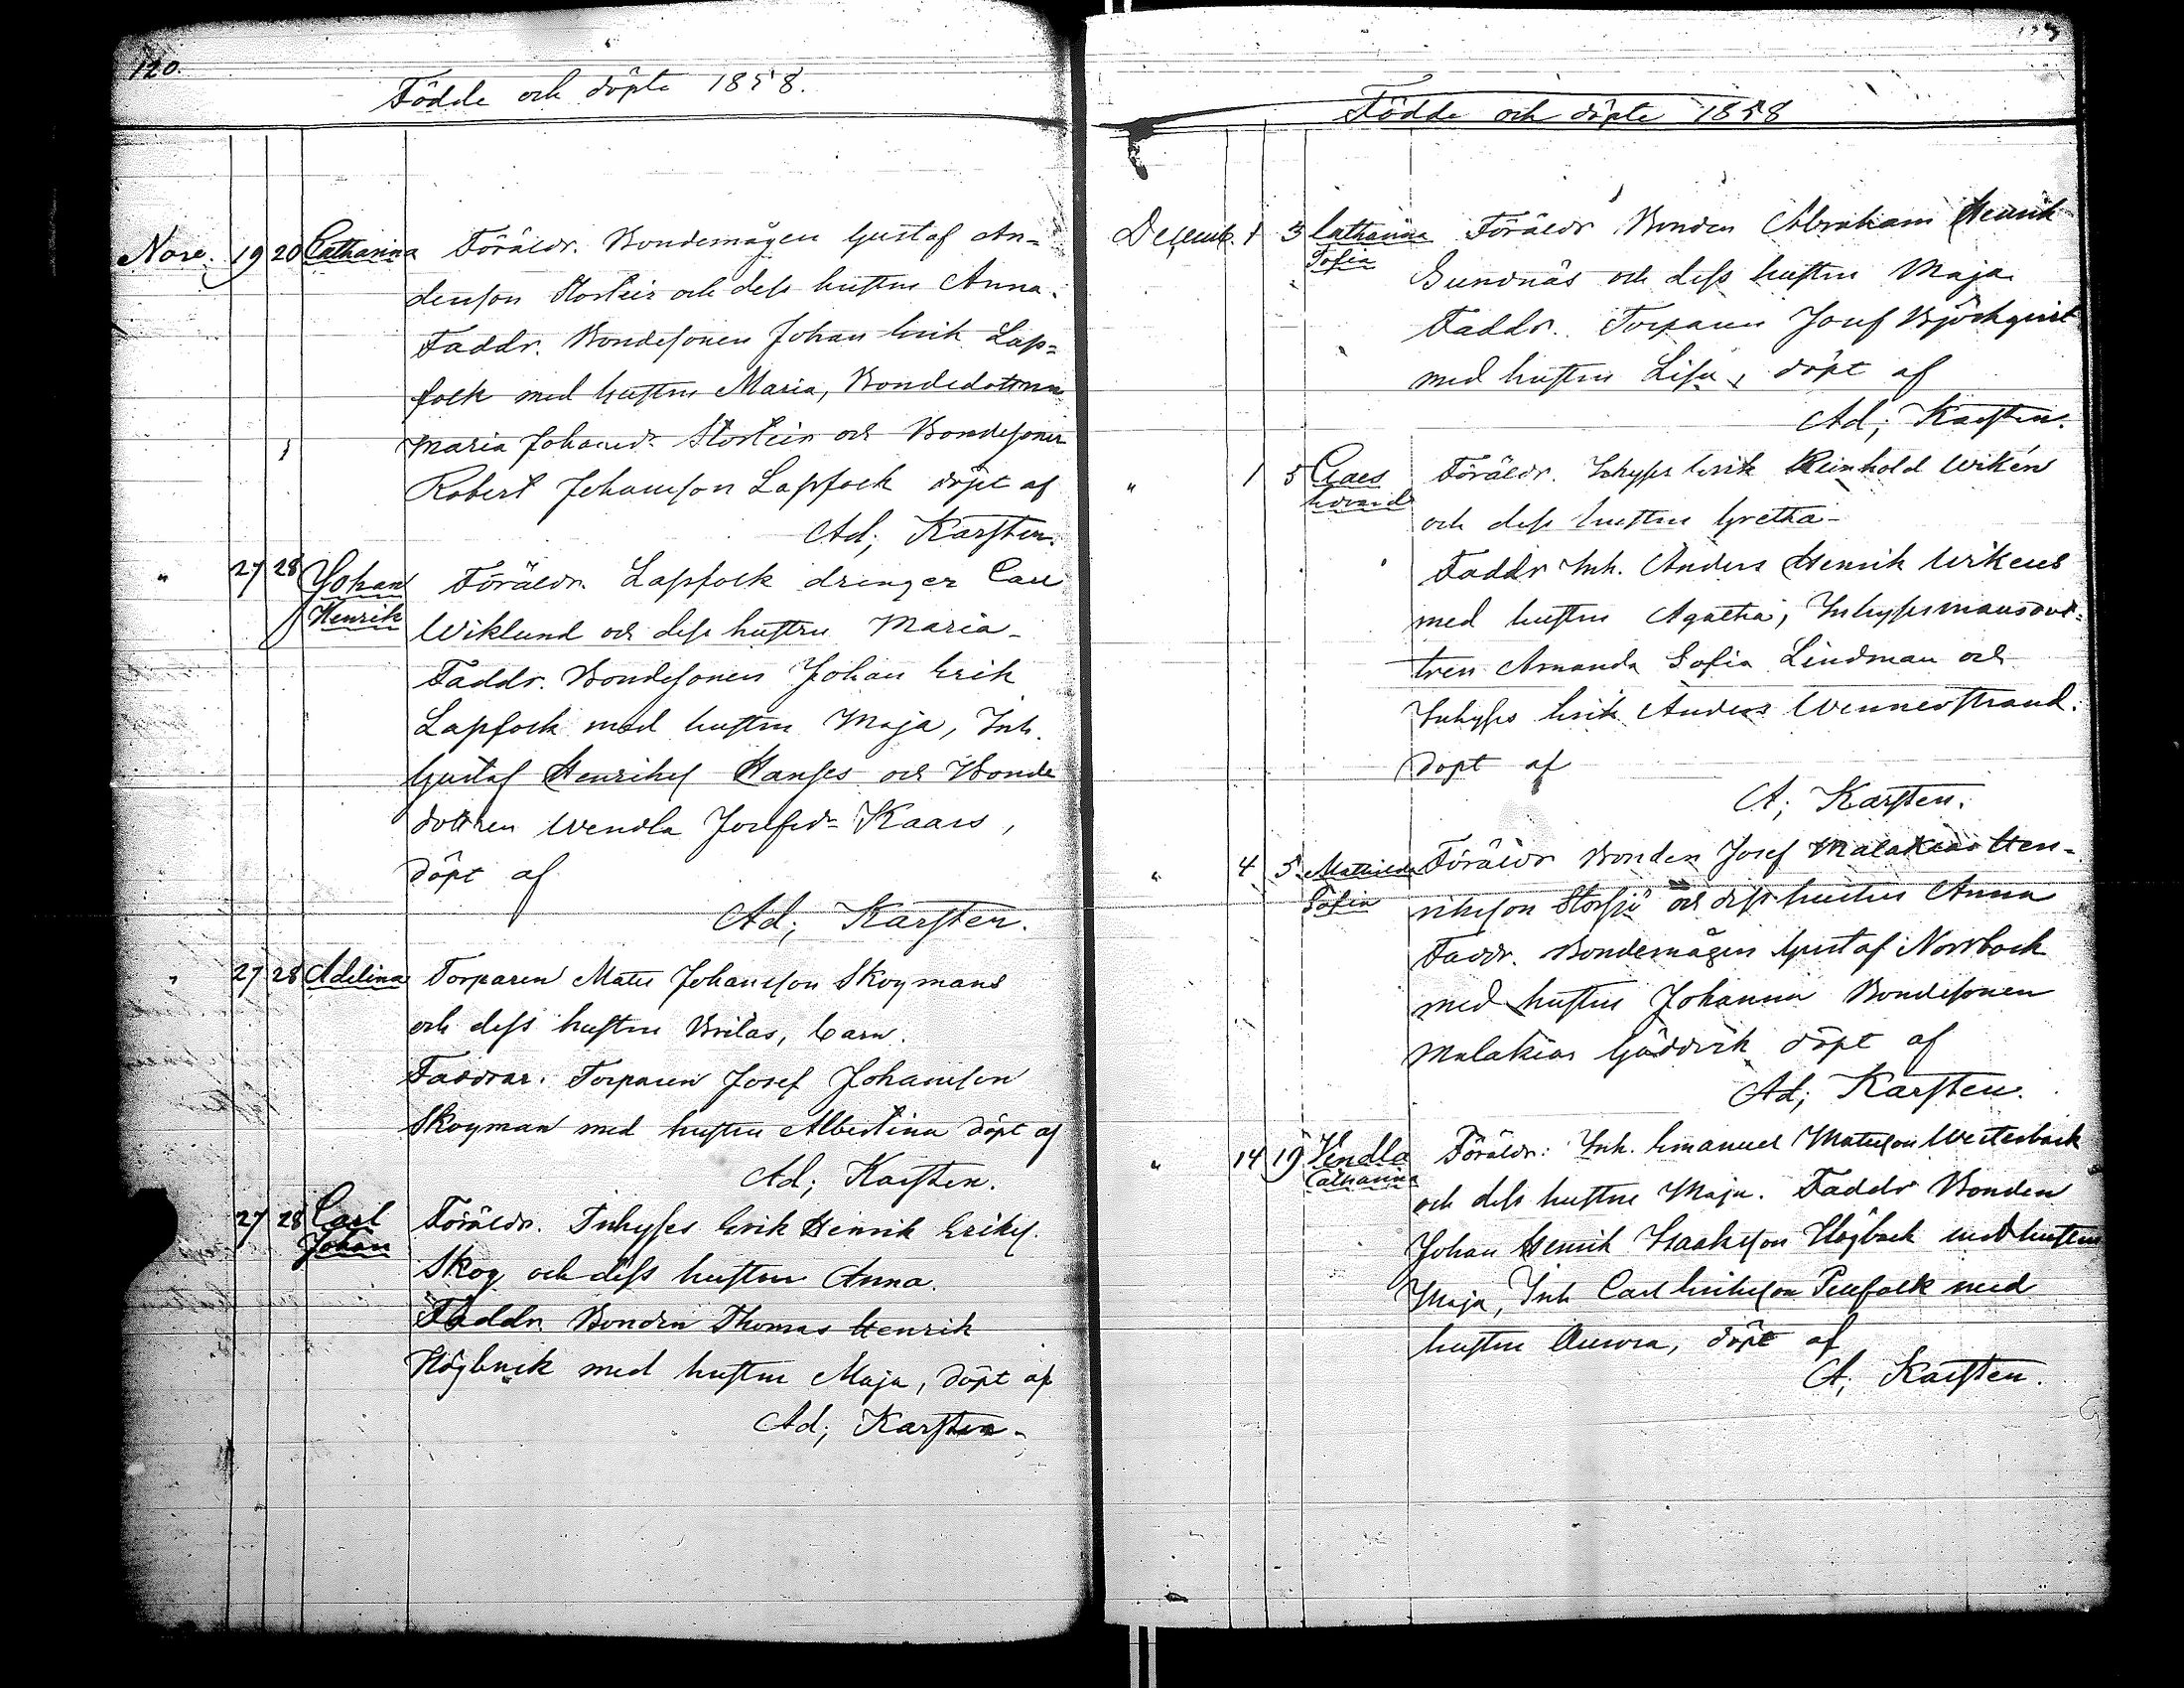 120.
Födde och döpte 1858.
Nove. 19 20 Catharina Föräldr. Bondemågen Gustaf An=
dersson Storteir och dess hustru Anna.
Faddr. Bondesonen Johan Erik Lap=
fock med hustru Maria, Bondedottren
Maria Johansdr Storteir och Bondesonen
Robert Johansson Lapfock döpt af
Ad; Karsten.
" 27 28 Johan Henrik Föräldr. Lapfock drenger Carl
Wiklund och dess hustru Maria-
Faddr. Bondesonen Johan Erik
Lapfock med hustru Maja, Inh.
Gustaf Henriks Hanses och Bonde
dottren Wendla Josefsdr Kaars,
döpt af
Ad; Karsten.
" 27 28 Adelina Torparen Mats Johansson Skogmans
och dess hustru Britas, barn.
Faddrar. Torparen Josef Johansson
Skogman med hustru Albertina döpt af
Ad; Karsten.
27 28 Carl Johan Föräldr. Inhyses Erik Henrik Eriks.
Skog och dess hustru Anna.
Faddr. Bonden Thomas Henrik
Högback med hustru Maja, döpt af
Ad; Karsten.
Födde och döpte 1858
Decemb. 1 3 Catharina Sofia Föräldr Bonden Abraham Henrik
Sundnäs och dess hustru Maja
Faddr. Torparen Josef Björkqvist
med hustru Lisa, döpt af
Ad; Karsten.
" 1 5 Claes Edvard Föräldr. Inhyses Erik Reinhold Wikén
och dess hustru Gretha-
Faddr Inh. Anders Henrik Wikens
med hustru Agatha, Inhysesmansdot=
tren Amanda Sofia Lindman och
Inhyses Erik Anders Wennerstrand.
döpt af
A; Karsten.
" 4 5 Mathilda Sofia Föräldr Bonden Josef Malakias Hen-
riksson Storsjö och dess hustru Anna
Faddr. Bondemågen Gustaf Norrback
med hustru Johanna Bondesonen
Malakias Gäddvik döpt af
Ad; Karsten.
" 14 19 Vendla Catharina Föräldr: Inh. Emanuel Matsson Westerback
och dess hustru Maja. Faddr Bonden
Johan Henrik Isaksson Högback med hustru
Maja, Inh Carl Eriksson Penfolk med
hustru Aurora, döpt af
A; Karsten.